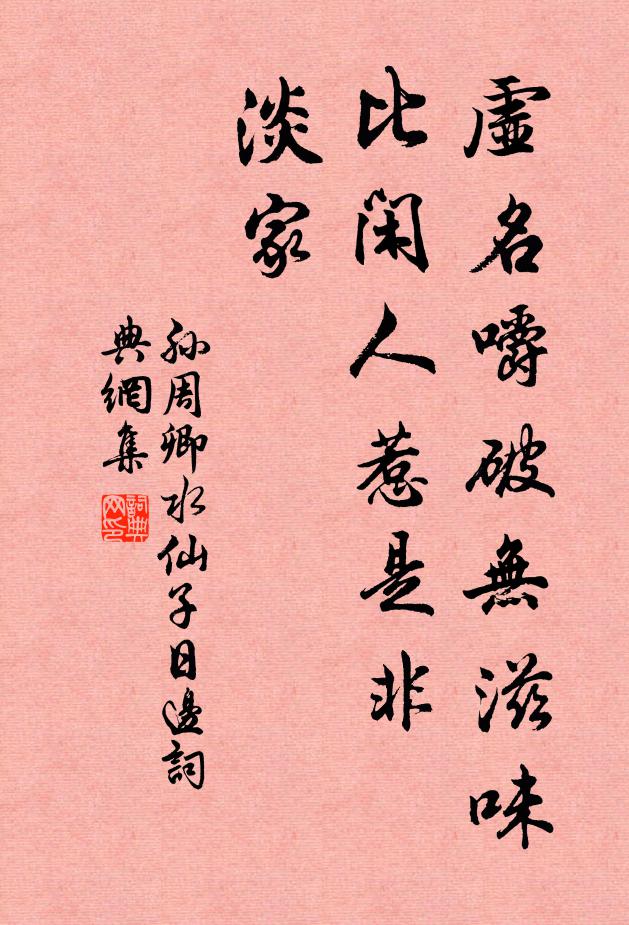 虛名嚼破無滋味
比閑人惹是非
淡家
孙周卿水仙子日邊詞
典網集
詞典網印